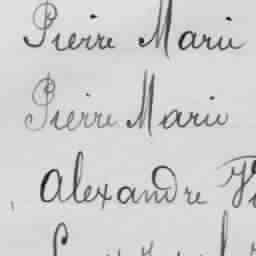 Pierre Marie
Pierre Marie
Alexandre